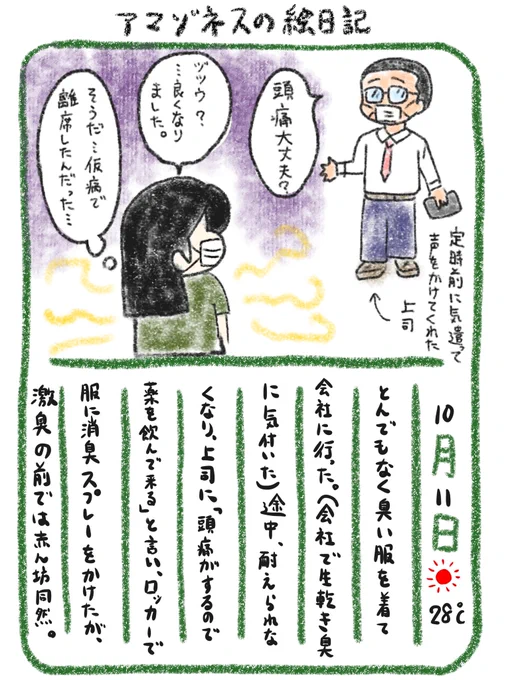 アマゾネスの絵日記
頭痛大丈夫？
ヅツウ？
…良くなり
ました。
そうだ…仮病で
離席したんだった…
定時前に気遣って
声をかけてくれた
上司
10月11日
28℃
とんでもなく臭い服を着て
会社に行った。(会社で生乾き臭
に気付いた)途中、耐えられな
くなり、上司に「頭痛がするので
薬を飲んで来る」と言い、ロッカーで
服に消臭スプレーをかけたが、
激臭の前では赤ん坊同然。